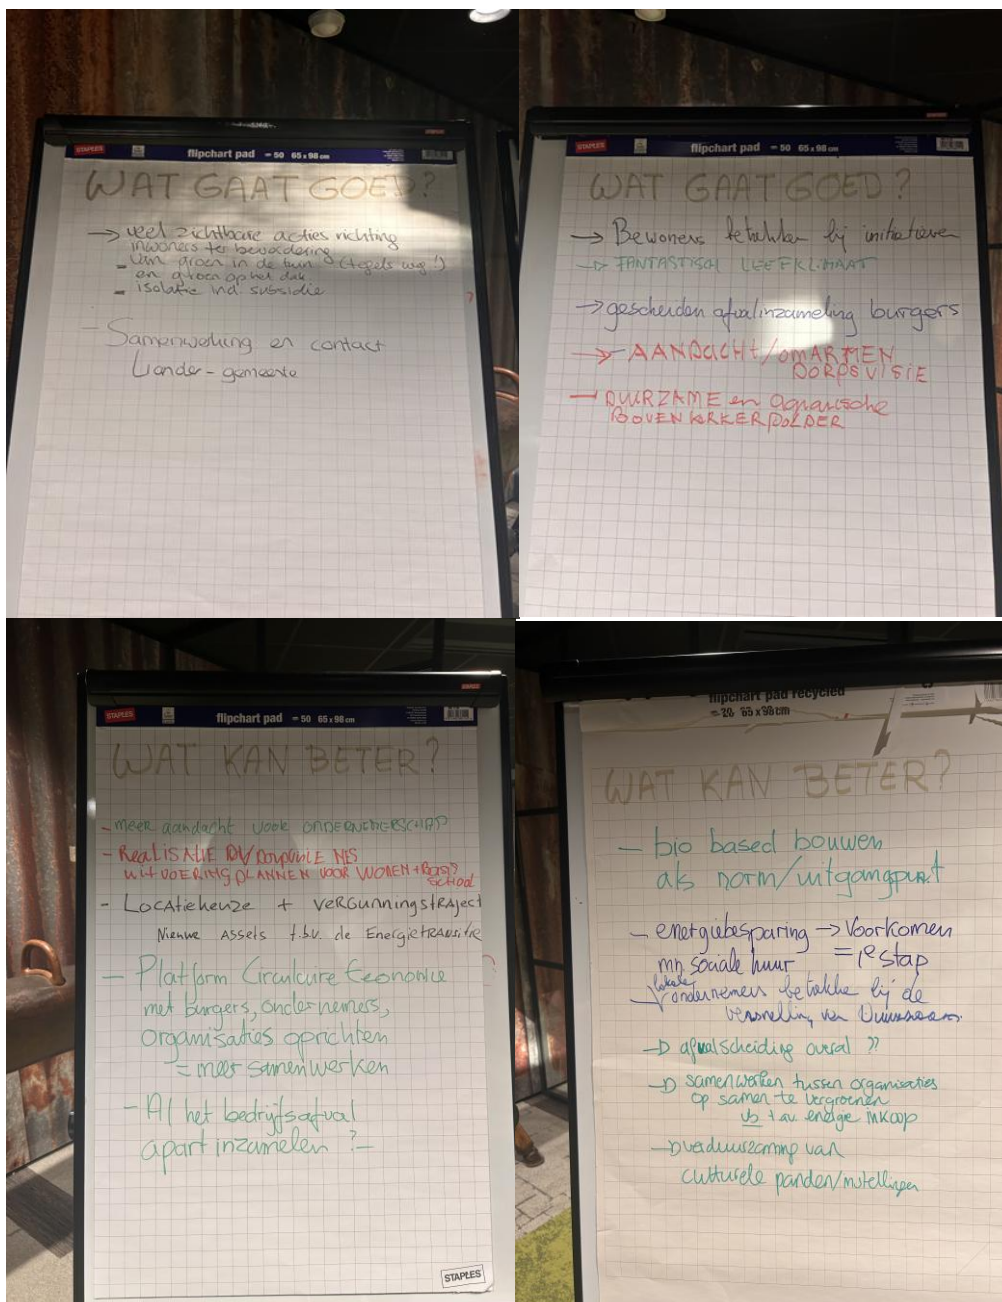 STAPLES
flipchart pad = 50 65 x 98 cm
WAT GAAT GOED?
→ veel zichtbare acties richting
inwoners ter bevordering
- van groen in de tuin (tegels weg!)
en groen op het dak
- isolatie incl. subsidie
- Samenwerking en contact
Liander - gemeente
STAPLES
flipchart pad = 50 65 x 98 cm
WAT GAAT GOED?
→ Bewoners betrekken bij initiatieven
→ FANTASTISCH LEEFKLIMAAT
→ gescheiden afvalinzameling burgers
→ AANDACHT/OMARMEN
DORPSVISIE
- DUURZAME en agrarische
BOVENKERKERPOLDER
STAPLES
flipchart pad = 50 65 x 98 cm
WAT KAN BETER?
- meer aandacht voor ONDERNEMERSCHAP
- REALISATIE NES
UITVOERING PLANNEN VOOR WONEN + Basis
School
- Locatiekeuze + VERGUNNINGSTRAJECT
Nieuwe ASSETS t.b.v. de ENERGIETRANSITIE
- Platform Circulaire Economie
met burgers, ondernemers,
organisaties oprichten
= meer samenwerken
- Al het bedrijfsafval
apart inzamelen ?-
STAPLES
flipchart pad recycled
= 20 65 x 98 cm
WAT KAN BETER?
- bio based bouwen
als norm/uitgangpunt
- energiebesparing → Voorkomen
mn sociale huur = 1e stap
- lokale ondernemers betrekke bij de
versnelling van
→ afvalscheiding overal ??
→ samenwerken tussen organisaties
op samen te vergroenen
vb t.a.v. energie inkoop
→ verduurzaming van
culturele panden/instellingen